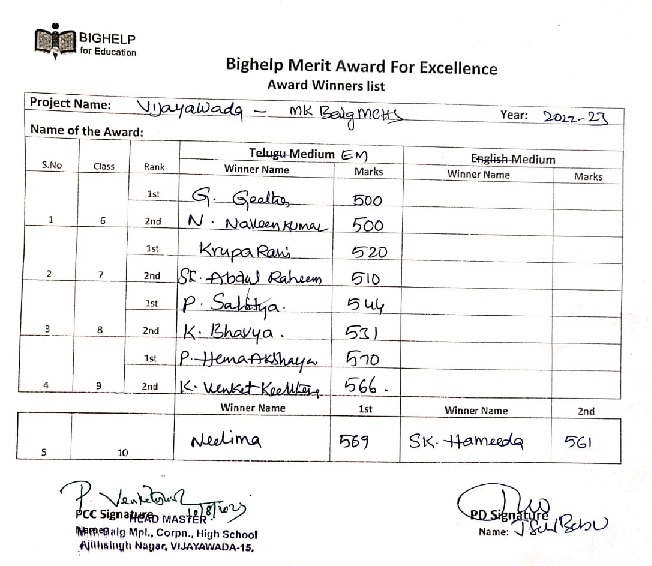 BIGHELP
for Education
Bighelp Merit Award For Excellence
Award Winners list
Project Name: Vijayawada - MK Baig MCHS Year: 2022-23
Name of the Award:
Telugu Medium EM English Medium
S.No Class Rank Winner Name Marks Winner Name Marks
1st G. Geetha 500
1 6 2nd N. Naveen Kumar 500
1st Krupa Rani 520
2 7 2nd SK. Abdul Raheem 510
1st P. Sahitya. 544
3 8 2nd K. Bhavya. 531
1st P. Hema Akshaya 570
4 9 2nd K. Venket 566.
Winner Name 1st Winner Name 2nd
5 10 Neelima 569 SK. Hameeda 561
PCC Signature
HEAD MASTER
Name
Baig Mpl., Corpn., High School
Ajithsingh Nagar, VIJAYAWADA-15.
PD Signature
Name: